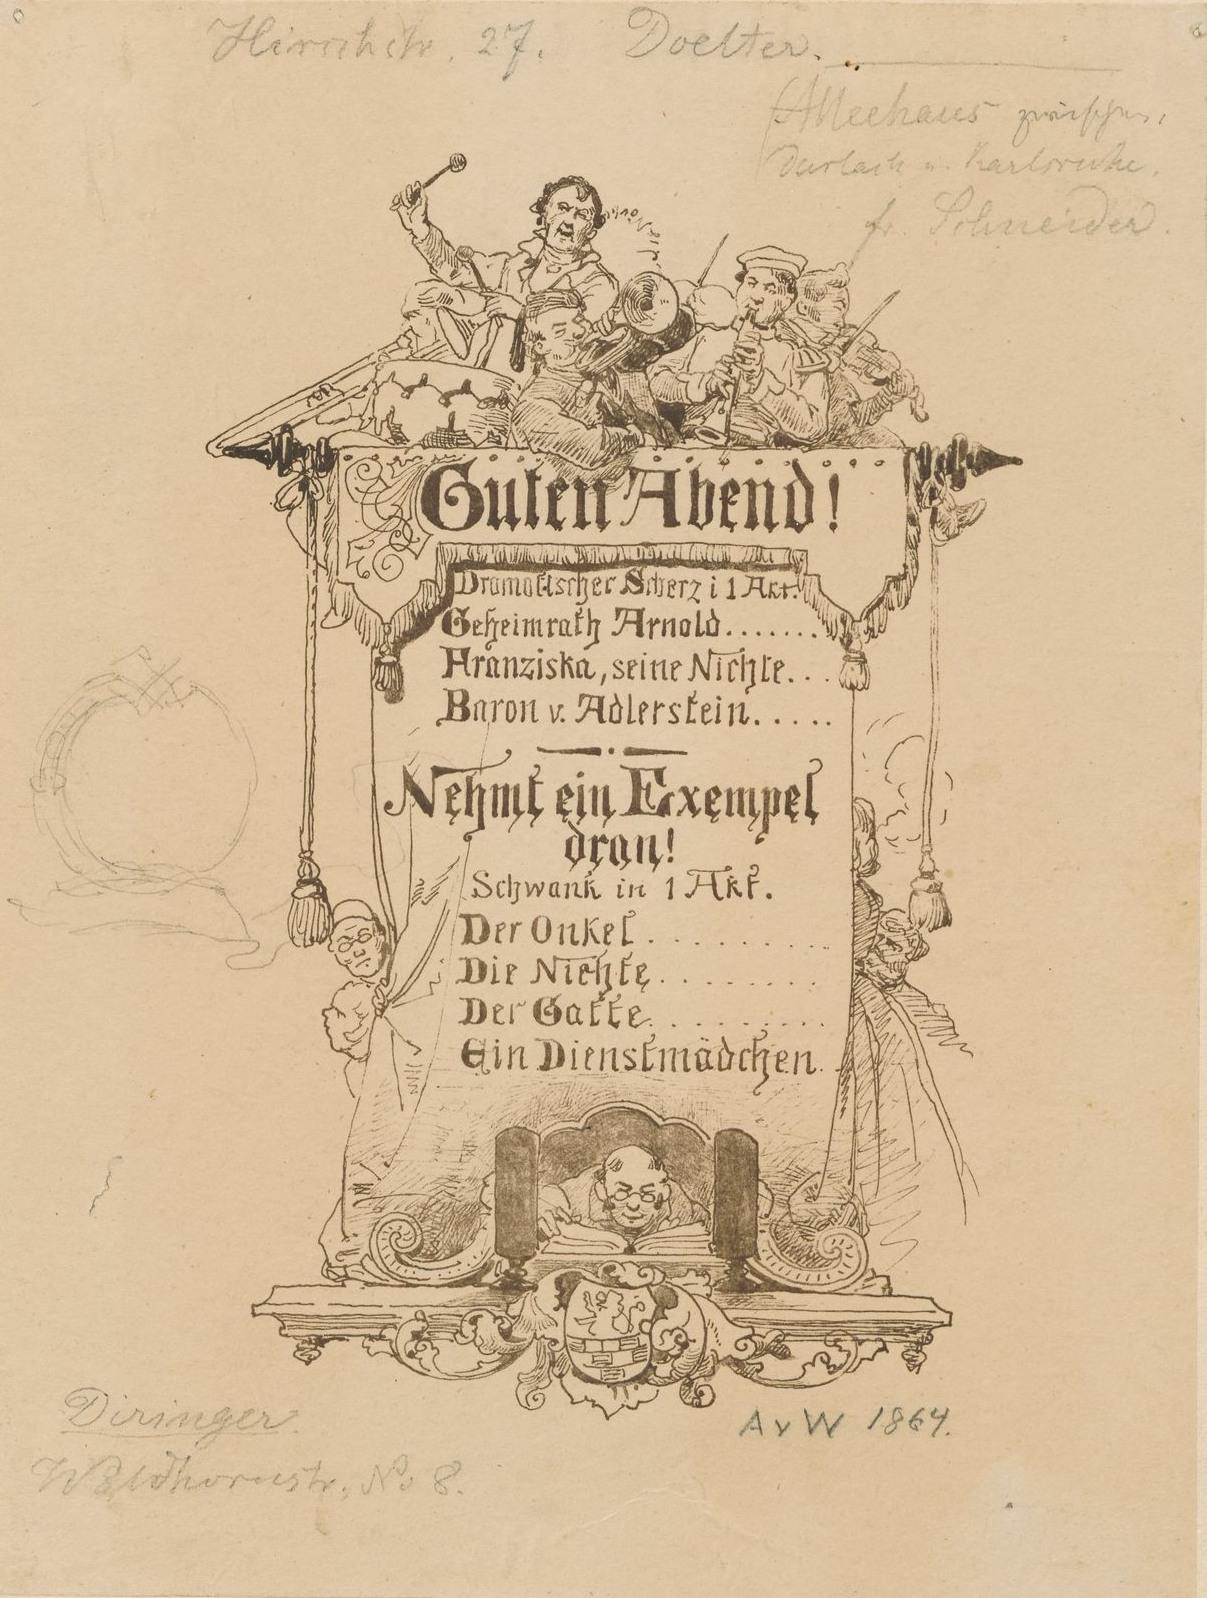 Hirschstr. 27. Doelter.
(Alleehaus zwischen
Durlach u. Karlsruhe.
fr. Schneider.
Guten Abend!
Dramatischer Scherz i 1 Akt.
Geheimrath Arnold.......
Franziska, seine Nichte...
Baron v. Adlerstein.....
Nehmt ein Exempel
dran!
Schwank in 1 Akt.
Der Onkel..........
Die Nichte.........
Der Gatte..........
Ein Dienstmädchen.
AvW 1864.
Diringer
Waldhornstr. No 8.